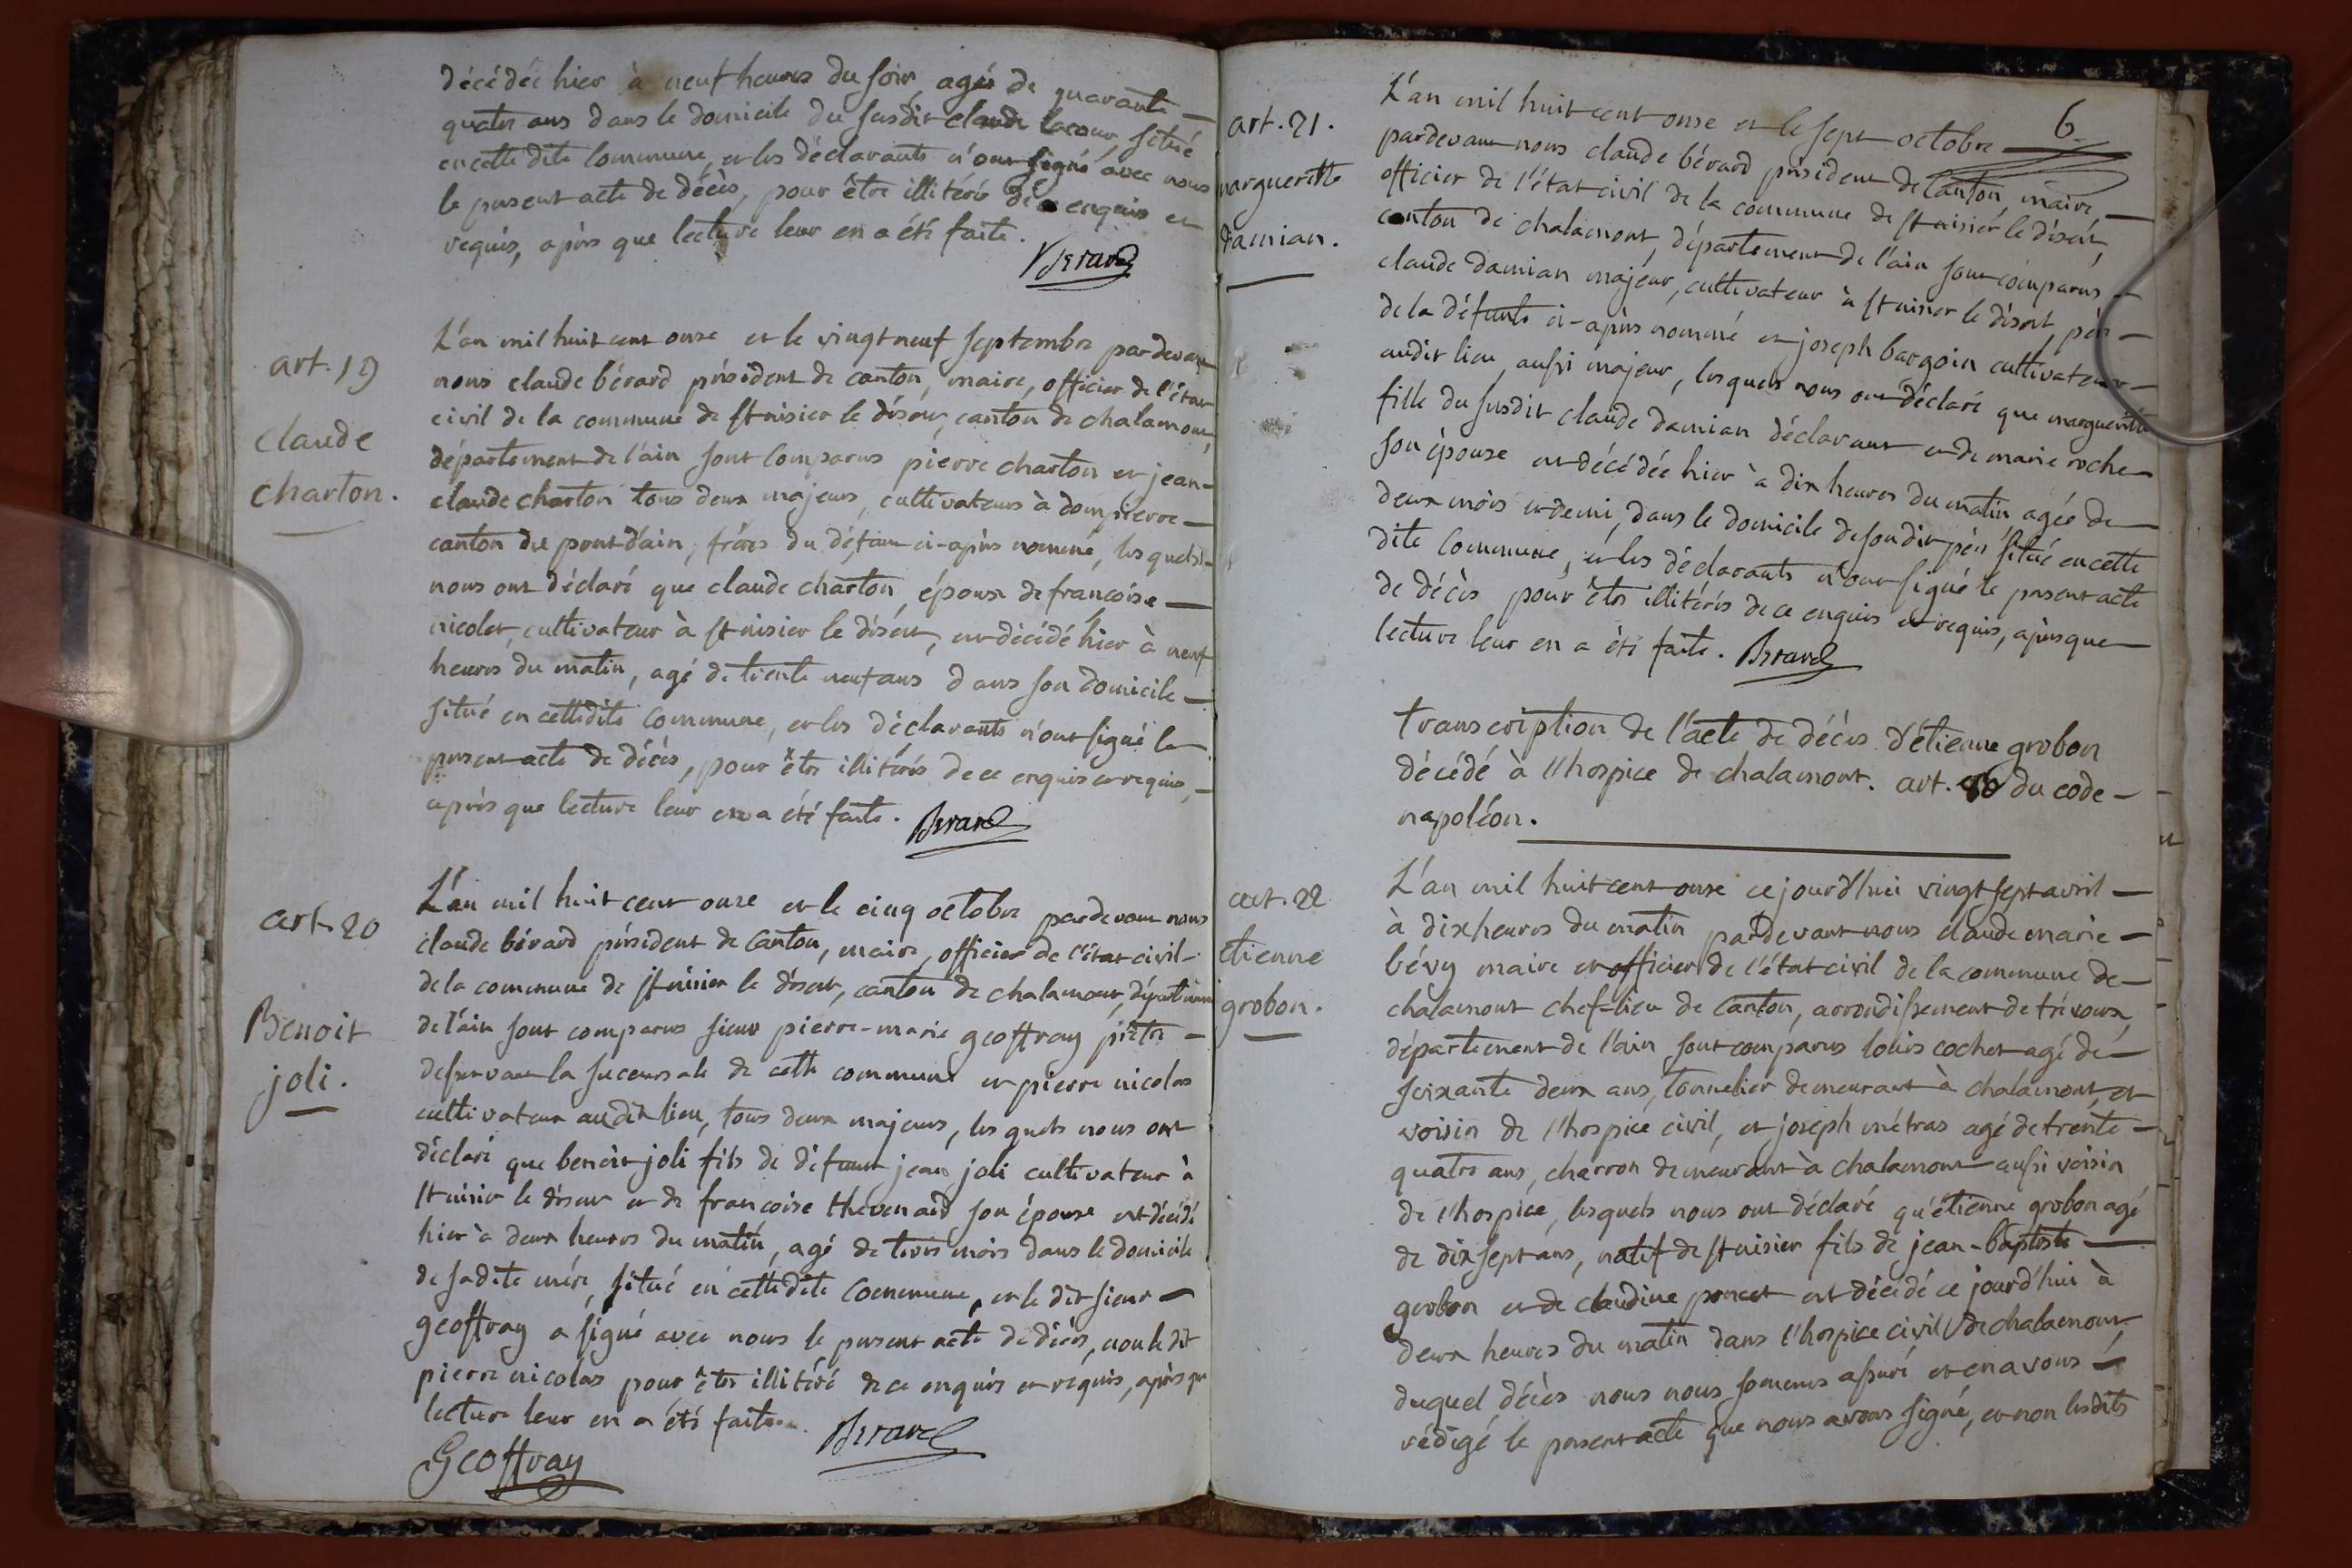 décédée hier à neuf heures du soir, agée de quarante
quatre ans dans le domicile du susdit claude lacour, situé
en cette dite Commune, et les déclarants n'ont signé avec nous
le present acte de décès, pour être illitérés de ce enquis et
requis, après que lecture leur en a été faite.
Berard
art. 19
claude
charton.
L'an mil huit cent onze et le vingt neuf septembre pardevant
nous claude bérard président de canton, maire, officier de l'état
civil de la commune de st nisier le désert, canton de chalamont,
département de l'ain sont Comparus pierre charton et jean-
claude charton tous deux majeurs, cultivateurs à dompierre
canton du pont d'ain, frères du défunt ci-après nommé, les quels
nous ont déclaré que claude charton époux de francoise
nicolet, cultivateur à st nisier le désert, est décédé hier à neuf
heures du matin, agé de trente neuf ans dans son domicile
situé en cette dite Commune, et les déclarants n'ont signé le
present acte de décès, pour être illitérés de ce enquis et requis,
après que lecture leur en a été faite. Berard
art. 20
Benoit
joli.
L'an mil huit cent onze et le cinq octobre pardevant nous
claude bérard président de Canton, maire, officier de l'état civil
de la commune de st nisier le désert, canton de chalamont, département
de l'ain sont comparus sieur pierre-marie geoffray prêtre
desservant la succursale de cette commune et pierre nicolas
cultivateur audit lieu, tous deux majeurs, les quels nous ont
déclaré que benoit joli fils de défunt jean joli cultivateur à
st nisier le désert et de francoise thevenard son épouse est décédé
hier à deux heures du matin, agé de trois mois dans le domicile
de sadite mère, situé en cette dite Commune, et le dit sieur
geoffray a signé avec nous le present acte de décès, non le dit
pierre nicolas pour être illitéré de ce enquis et requis, après que
lecture leur en a été faite.
Berard
Geoffray
6
art. 21.
marguerite
damian.
L'an mil huit cent onze et le sept octobre
pardevant nous claude bérard président de Canton, maire,
officier de l'état civil de la commune de st nisier le désert,
canton de chalamont, département de l'ain sont comparus
claude damian majeur, cultivateur à st nisier le désert, père
de la défunte ci-après nommé et joseph bargoin cultivateur
audit lieu, aussi majeur, lesquels nous ont déclaré que marguerite
fille du susdit claude damian déclarant et de marie roche
son épouse est décédée hier à dix heures du matin, agée de
deux mois et demi, dans le domicile de sondit père situé en cette
dite Commune, et les déclarants n'ont signé le present acte
de décès pour être illitérés de ce enquis et requis, après que
lecture leur en a été faite. Berard
transcription de l'acte de décès d'étienne grobon
décédé à l'hospice de chalamont. art. 80 du code
napoléon.
art. 22
étienne
grobon.
L'an mil huit cent onze ce jourd'hui vingt sept avril
à dix heures du matin pardevant nous claude marie
bévy maire et officier de l'état civil de la commune de
chalamont chef-lieu de Canton, arrondissement de trévoux,
département de l'ain sont comparus louis cochet agé de
soixante deux ans, tonnelier demeurant à chalamont, et
voisin de l'hospice civil, et joseph métras agé de trente
quatre ans, charron demeurant à chalamont aussi voisin
de l'hospice, lesquels nous ont déclaré qu'étienne grobon agé
de dix sept ans, natif de st nisier fils de jean-baptiste
grobon et de claudine poncet est décédé ce jourd'hui à
deux heures du matin dans l'hospice civil de chalamont,
duquel décès nous nous sommes assuré et en avons
rédigé le present acte que nous avons signé, et non lesdits